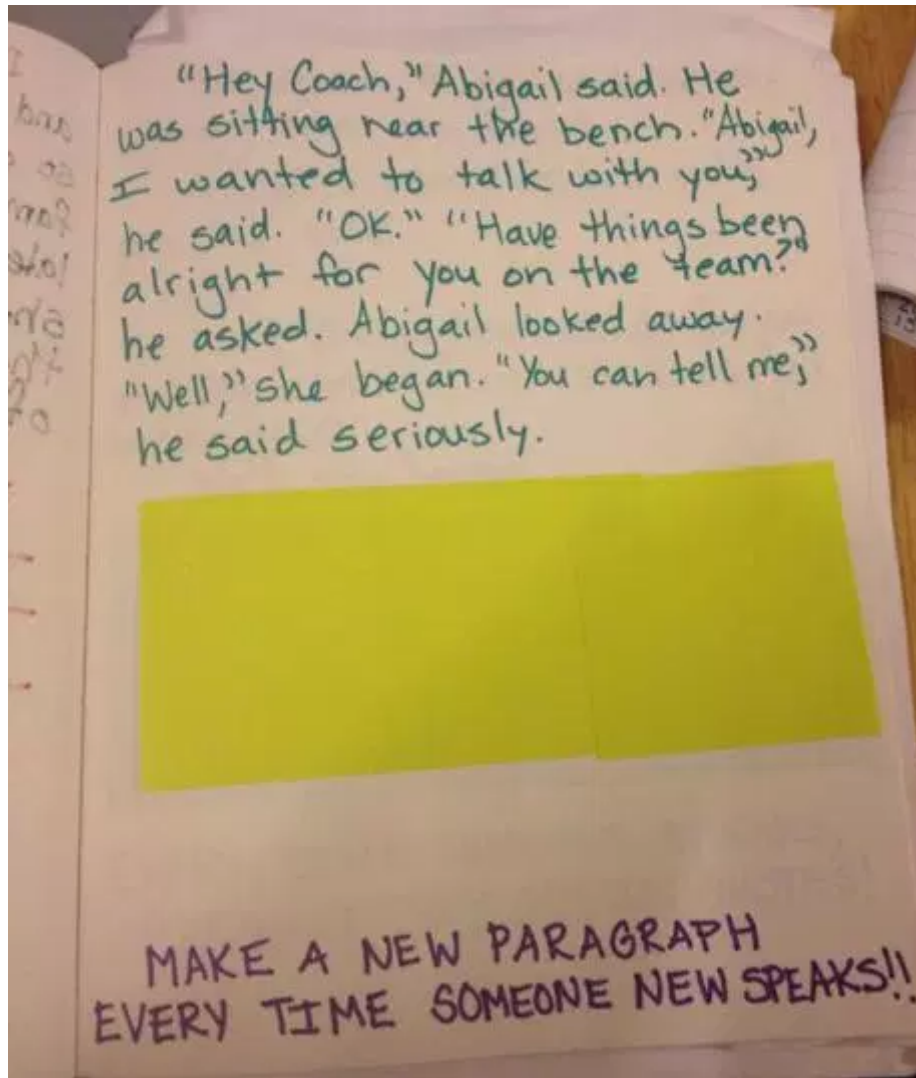 "Hey Coach," Abigail said. He
was sitting near the bench. "Abigail,
I wanted to talk with you,"
he said. "OK." "Have things been
alright for you on the team?"
he asked. Abigail looked away.
"Well," she began. "You can tell me,"
he said seriously.
MAKE A NEW PARAGRAPH
EVERY TIME SOMEONE NEW SPEAKS!!